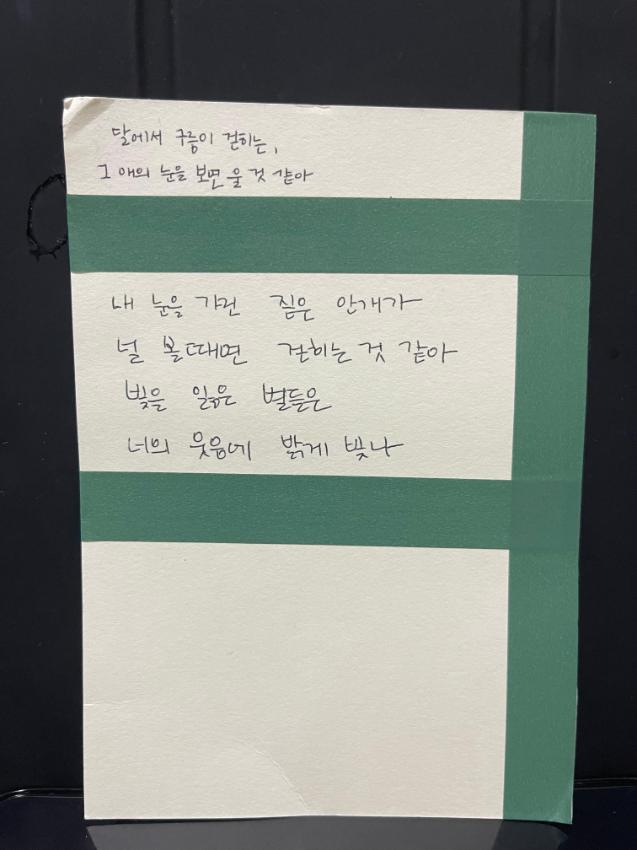 달에서 구름이 걷히는,
그 애의 눈을 보면 울 것 같아
내 눈을 가린 짙은 안개가
널 볼때면 걷히는 것 같아
빛을 잃은 별들은
너의 웃음에 밝게 빛나